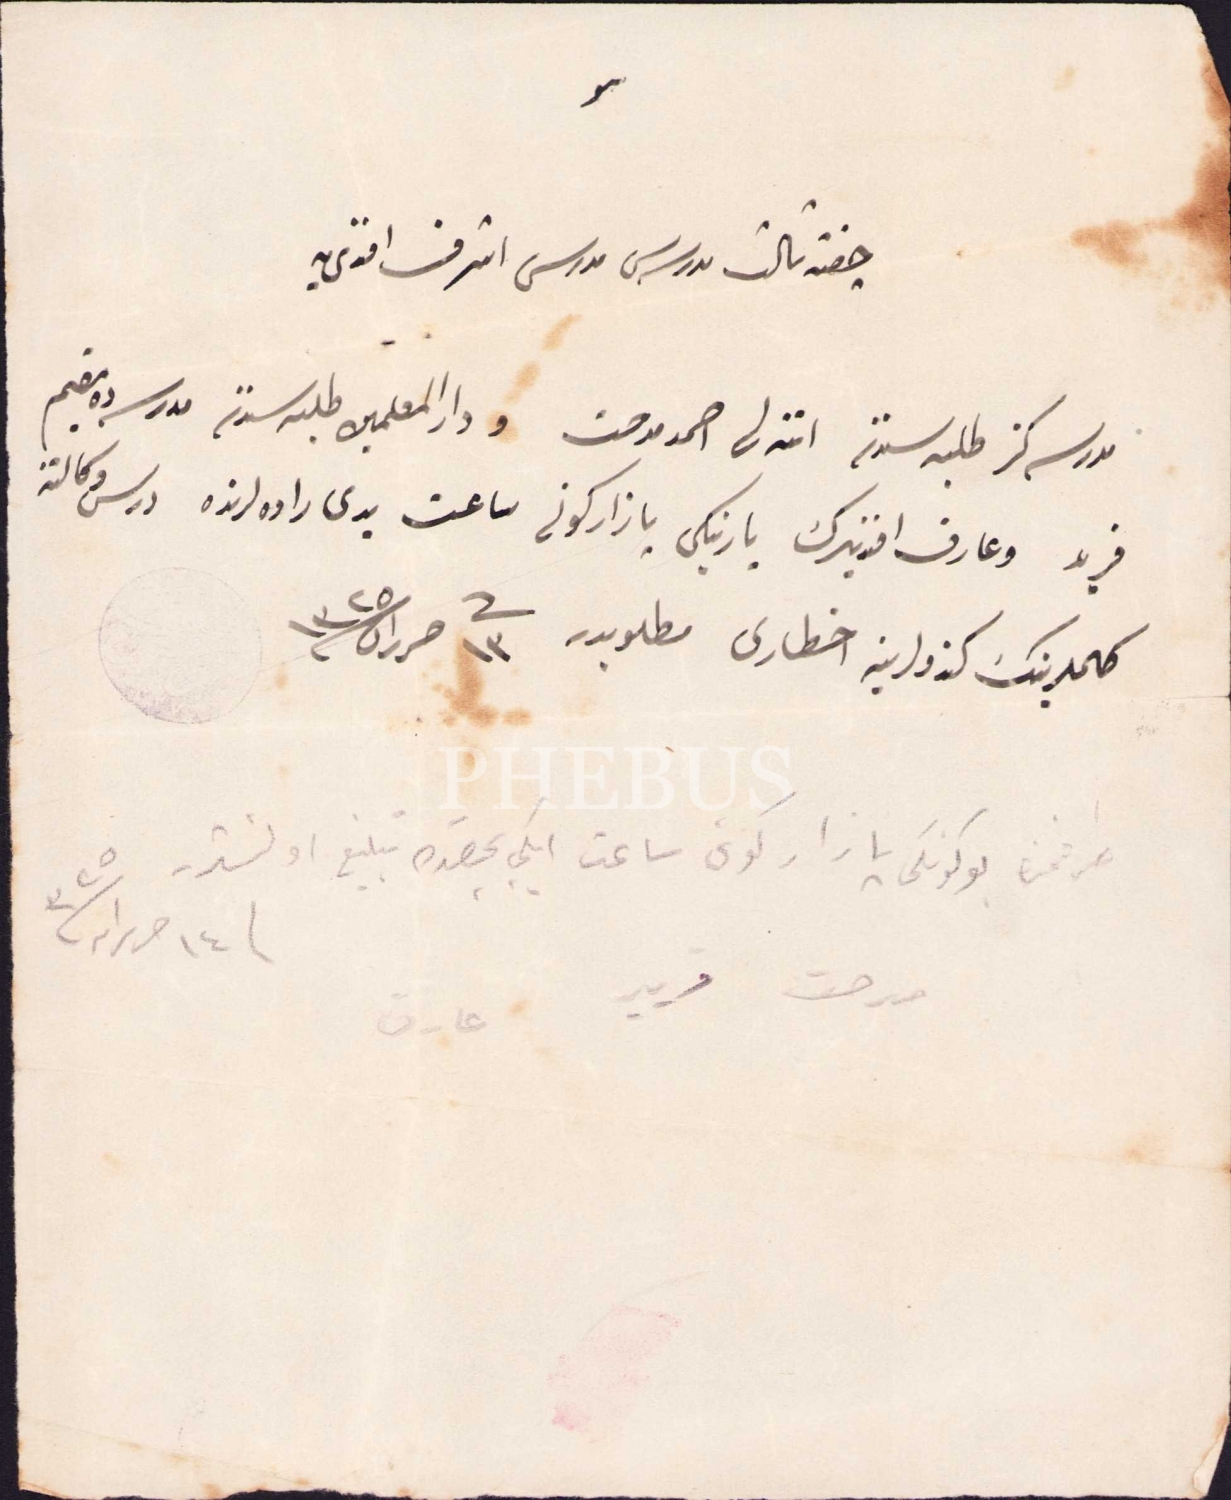 هو
چفته ثالث مدرسه‌سی مدرسی اشرف افندی‌یه
مدرسه‌كز طلبه‌سندن احمد مدحت و دار المعلمین طلبه‌سندن مدرسه‌ده مقیم
فرید و عارف افندیلرك یارینكی پازار كونی ساعت یدی راده‌لرنده درس وكالتنه
كلملرینك كندولرینه اخطاری مطلوبدر فی ١٣ حزیران ١٣٢٥
PHEBUS
طرفمزه بوكونكی پازار كونی ساعت ایكی بچقده تبلیغ اولنمشدر
١٤ حزیران ٣٢٥
مدحت فرید
عارف